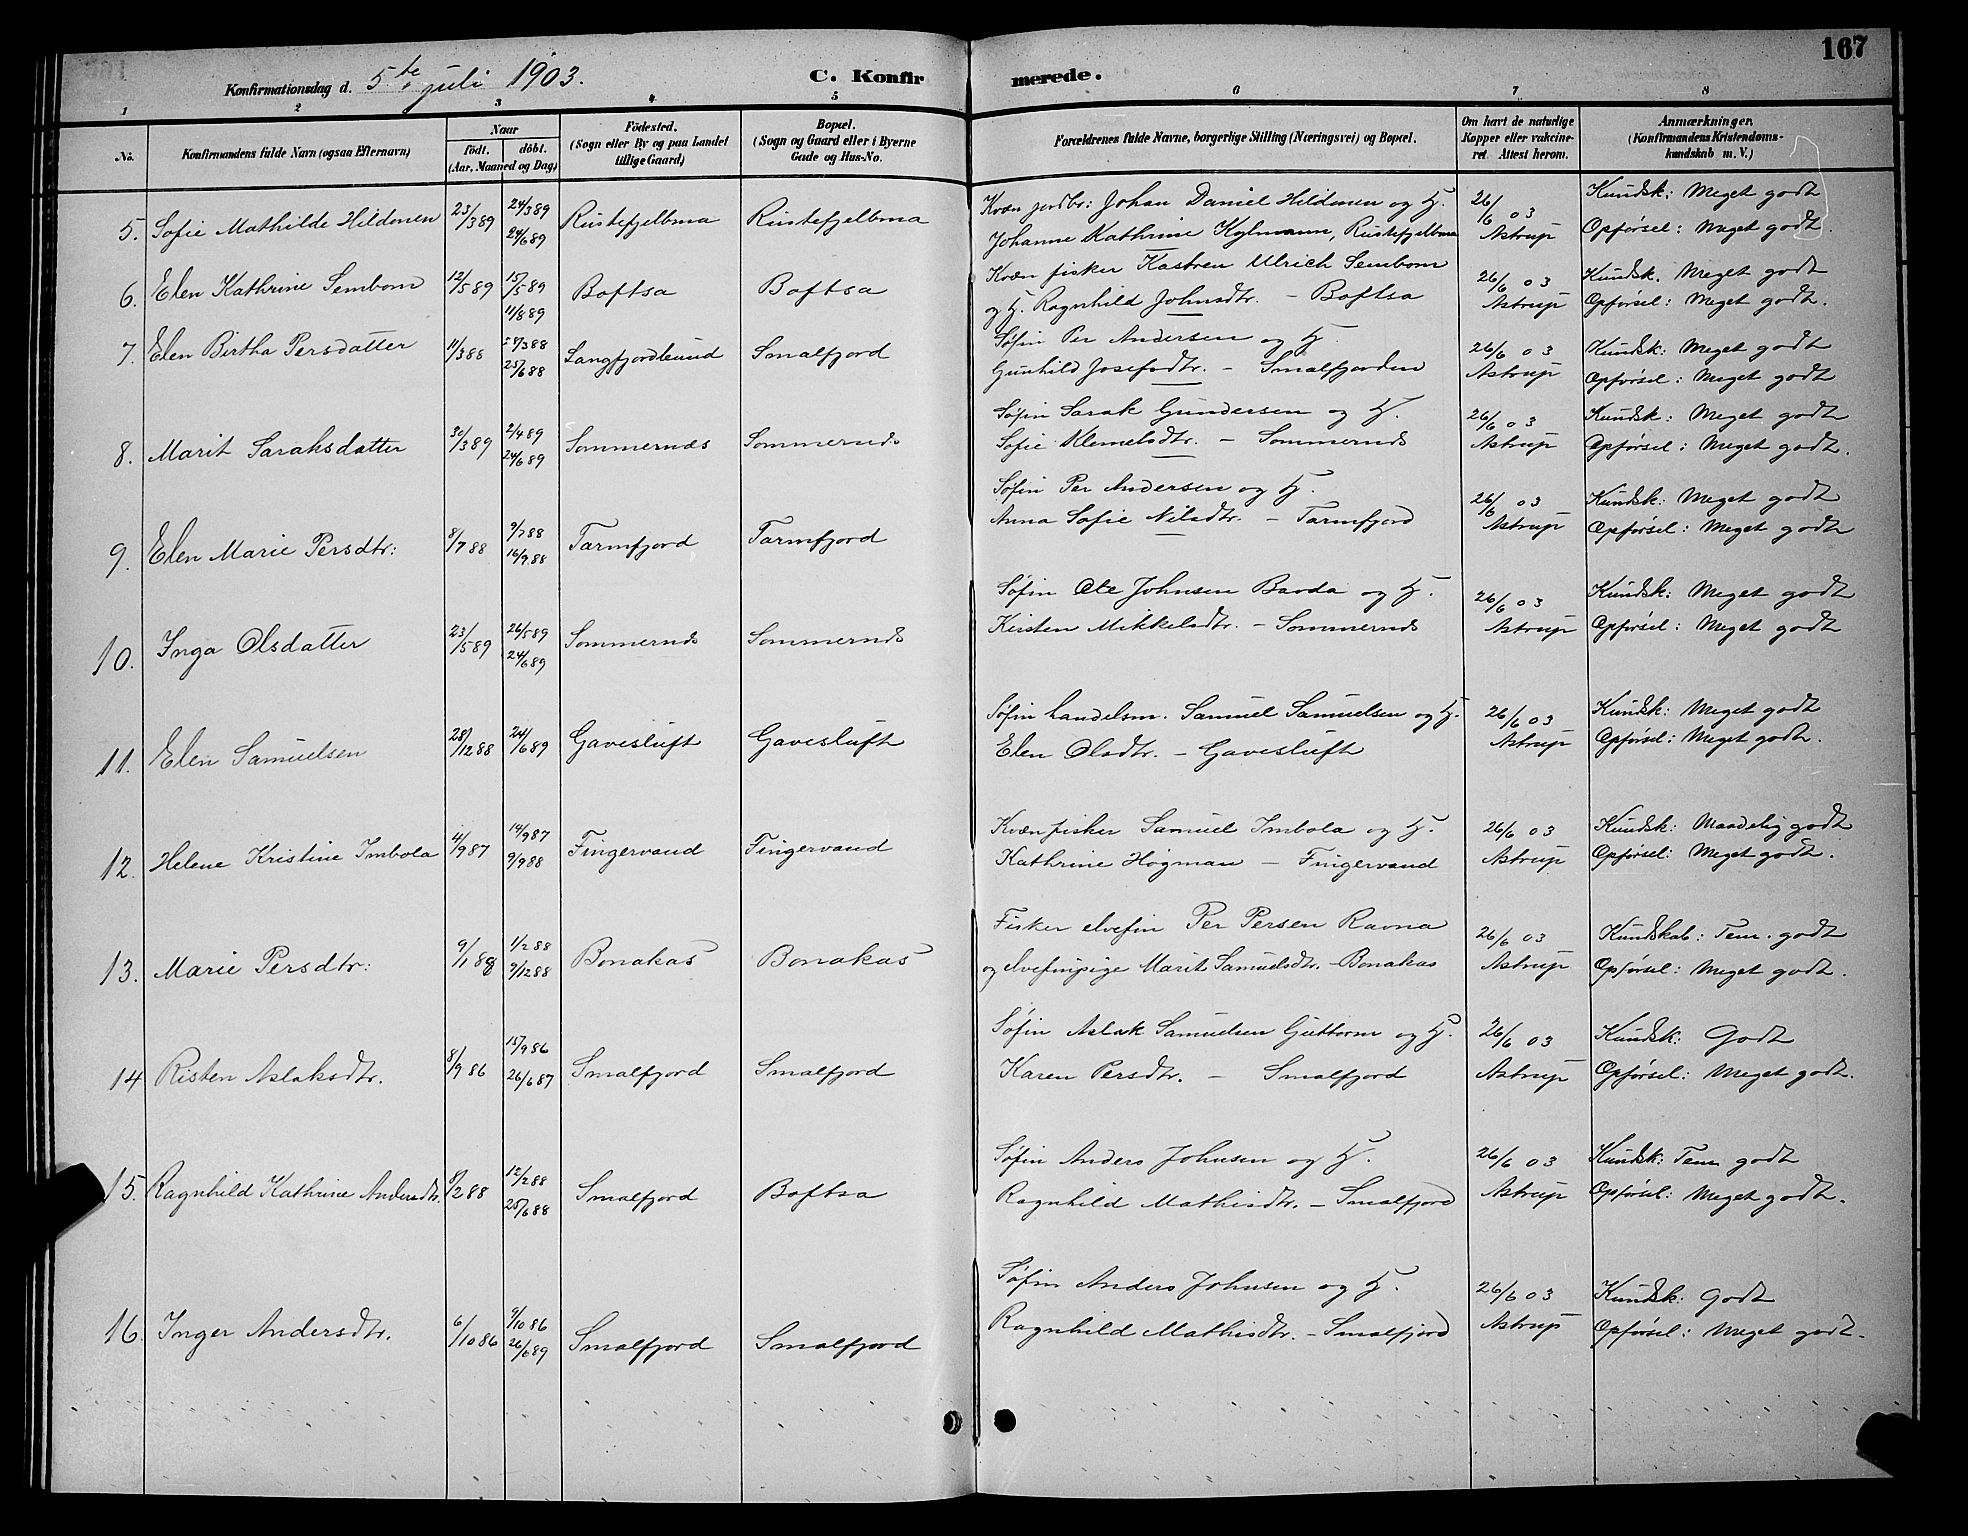 167
Konfirmationsdag d. 5te juli 1903.
C. Konfirmerede.
1 2 3 4 5 6 7 8
No.
Konfirmandens fulde Navn (ogsaa Efternavn)
Naar
födt. döbt.
(Aar, Maaned og Dag)
Födested.
(Sogn eller By og paa Landet
tillige Gaard)
Bopæl.
(Sogn og Gaard eller i Byerne
Gade og Hus-No.
Forældrenes fulde Navne, borgerlige Stilling (Næringsvei) og Bopæl.
Om havt de naturlige
Kopper eller vakcine-
ret. Attest herom.
Anmærkninger.
(Konfirmandens Kristendoms-
kundskab m. V.)
5. Sofie Mathilde Hildonen 23/3 89 24/3 89 24/6 89 Rustefjelbma Rustefjelbma
Kvæn jordbr: Johan Daniel Hildonen og H. 26/6 03 Kundsk: Meget godt
Johanne Kathrine Kylmänn, Rustefjelbma Astrup Opførsel: Meget godt.
6. Elen Kathrine Sembom 12/5 89 15/5 89 11/8 89 Boftsa Boftsa
Kvæn fisker Kastren Ulrich Sembom 26/6 03 Kundsk. Meget godt
og H. Ragnhild Johnsdtr. - Boftsa Astrup Opførsel: Meget godt.
7. Elen Birtha Persdatter 11/3 88 /3 88 25/6 88 Langfjordbund Smalfjord
Søfin Per Andersen og H. 26/6 03 Kundsk: Meget godt
Gunhild Josefsdtr. - Smalfjorden Astrup Opførsel: Meget godt
8. Marit Saraksdatter 30/3 89 2/4 89 24/6 89 Sommernæs Sommernæs
Søfin Sarak Gundersen og H. 26/6 03 Kundsk: Meget godt
Sofie Klemetsdtr. - Sommernæs Astrup Opførsel: Meget godt.
9. Elen Marie Persdtr: 8/7 88 9/7 88 16/9 88 Tarmfjord Tarmfjord
Søfin Per Andersen og H. 26/6 03 Kundsk: Meget godt
Anna Sofie Nilsdtr. - Tarmfjord Astrup Opførsel: Meget godt
10. Inga Olsdatter 23/5 89 26/5 89 24/6 89 Sommernæs Sommernæs
Søfin Ole Johnsen Banda og H. 26/6 03 Kundsk: Meget godt
Kirsten Mikkelsdtr. - Sommernæs Astrup Opførsel: Meget godt
11. Elen Samuelsen 28/12 88 24/6 89 Gavesluft Gavesluft
Søfin handelsm. Samuel Samuelsen og H. 26/6 03 Kundsk: Meget godt
Elen Olsdtr. - Gavesluft Astrup Opførsel: Meget godt.
12. Helene Kristine Imbola 4/9 87 14/9 87 9/9 88 Fingervand Fingervand
Kvæn fisker Samuel Imbola og H. 26/6 03 Kundsk: Maadelig godt
Kathrine Høgman - Fingervand Astrup Opførsel: Meget godt.
13. Marie Persdtr: 9/1 88 1/2 88 9/12 88 Bonakas Bonakas
Fisker elvefin Per Persen Ravna 26/6 03 Kundskab: Tem. godt
og elvefinpige Marit Samuelsdtr. Bonakas Astrup Opførsel: Meget godt.
14 Risten Aslaksdtr. 8/9 86 15/9 86 26/6 87 Smalfjord Smalfjord
Søfin Aslak Samuelsen Guttorm og H. 26/6 03 Kundsk: Godt
Karen Persdtr. - Smalfjord Astrup Opførsel: Meget godt.
15. Ragnhild Kathrine Andersdtr. 9/2 88 12/2 88 25/6 88 Smalfjord Boftsa
Søfin Anders Johnsen og H. 26/6 03 Kundsk: Tem godt
Ragnhild Mathisdtr. - Smalfjord Astrup Opførsel: Meget godt.
16. Inger Andersdtr. 6/10 86 9/10 86 26/6 89 Smalfjord Smalfjord
Søfin Anders Johnsen og H. 26/6 03 Kundsk: Godt
Ragnhild Mathisdtr. - Smalfjord Astrup Opførsel: Meget godt.